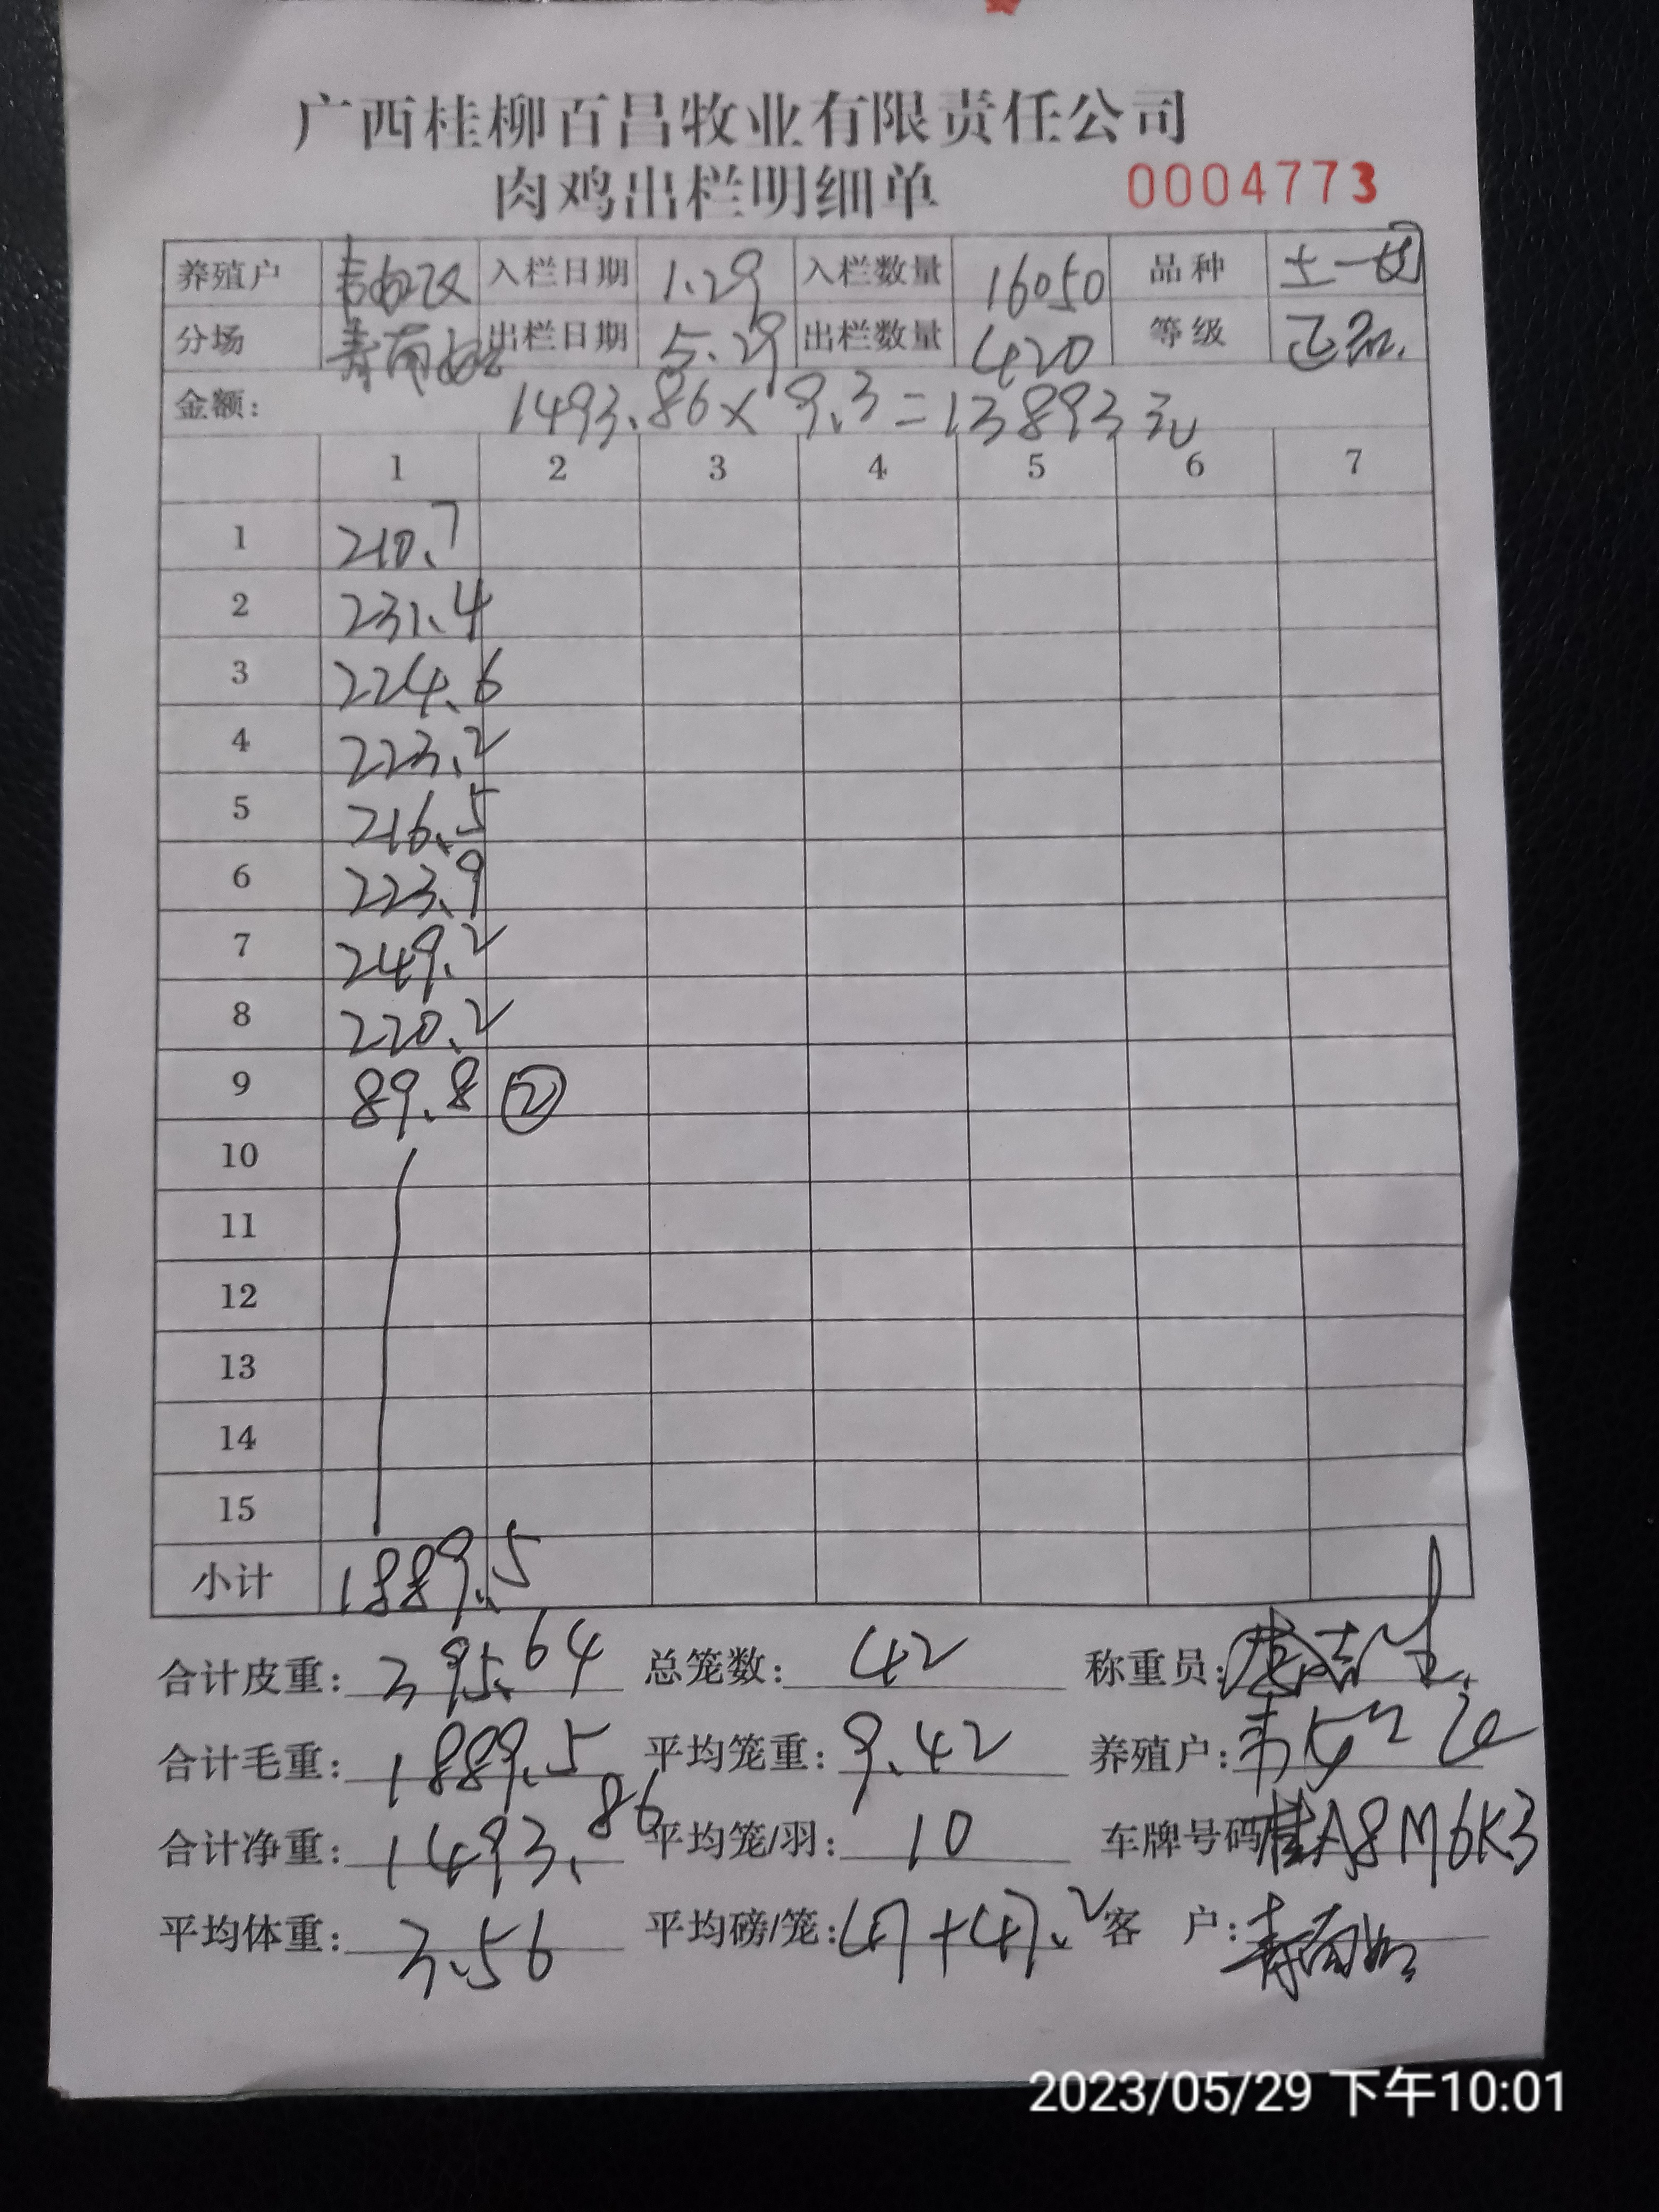 广西桂柳百昌牧业有限责任公司
肉鸡出栏明细单 0004773
养殖户 入栏日期 1.29 入栏数量 16050 品种 土一
分场 出栏日期 5.29 出栏数量 420 等级 正品.
金额: 1493.86×9.3=13893元
1 2 3 4 5 6 7
1 210.7
2 231.4
3 224.6
4 223.2
5 216.5
6 223.9
7 249.2
8 220.2
9 89.8 ②
10
11
12
13
14
15
小计 1889.5
合计皮重: 395.64 总笼数: 42 称重员:
合计毛重: 1889.5 平均笼重: 9.42 养殖户: 韦
合计净重: 1493.86 平均笼/羽: 10 车牌号码 桂A8M6K3
平均体重: 3.56 平均磅/笼: 47+47.2 客 户:
2023/05/29 下午10:01